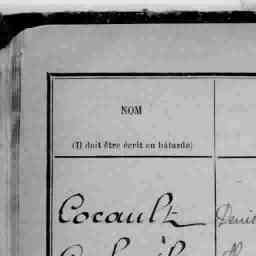 NOM
(Il doit être écrit en bâtarde)
Cocault Denis